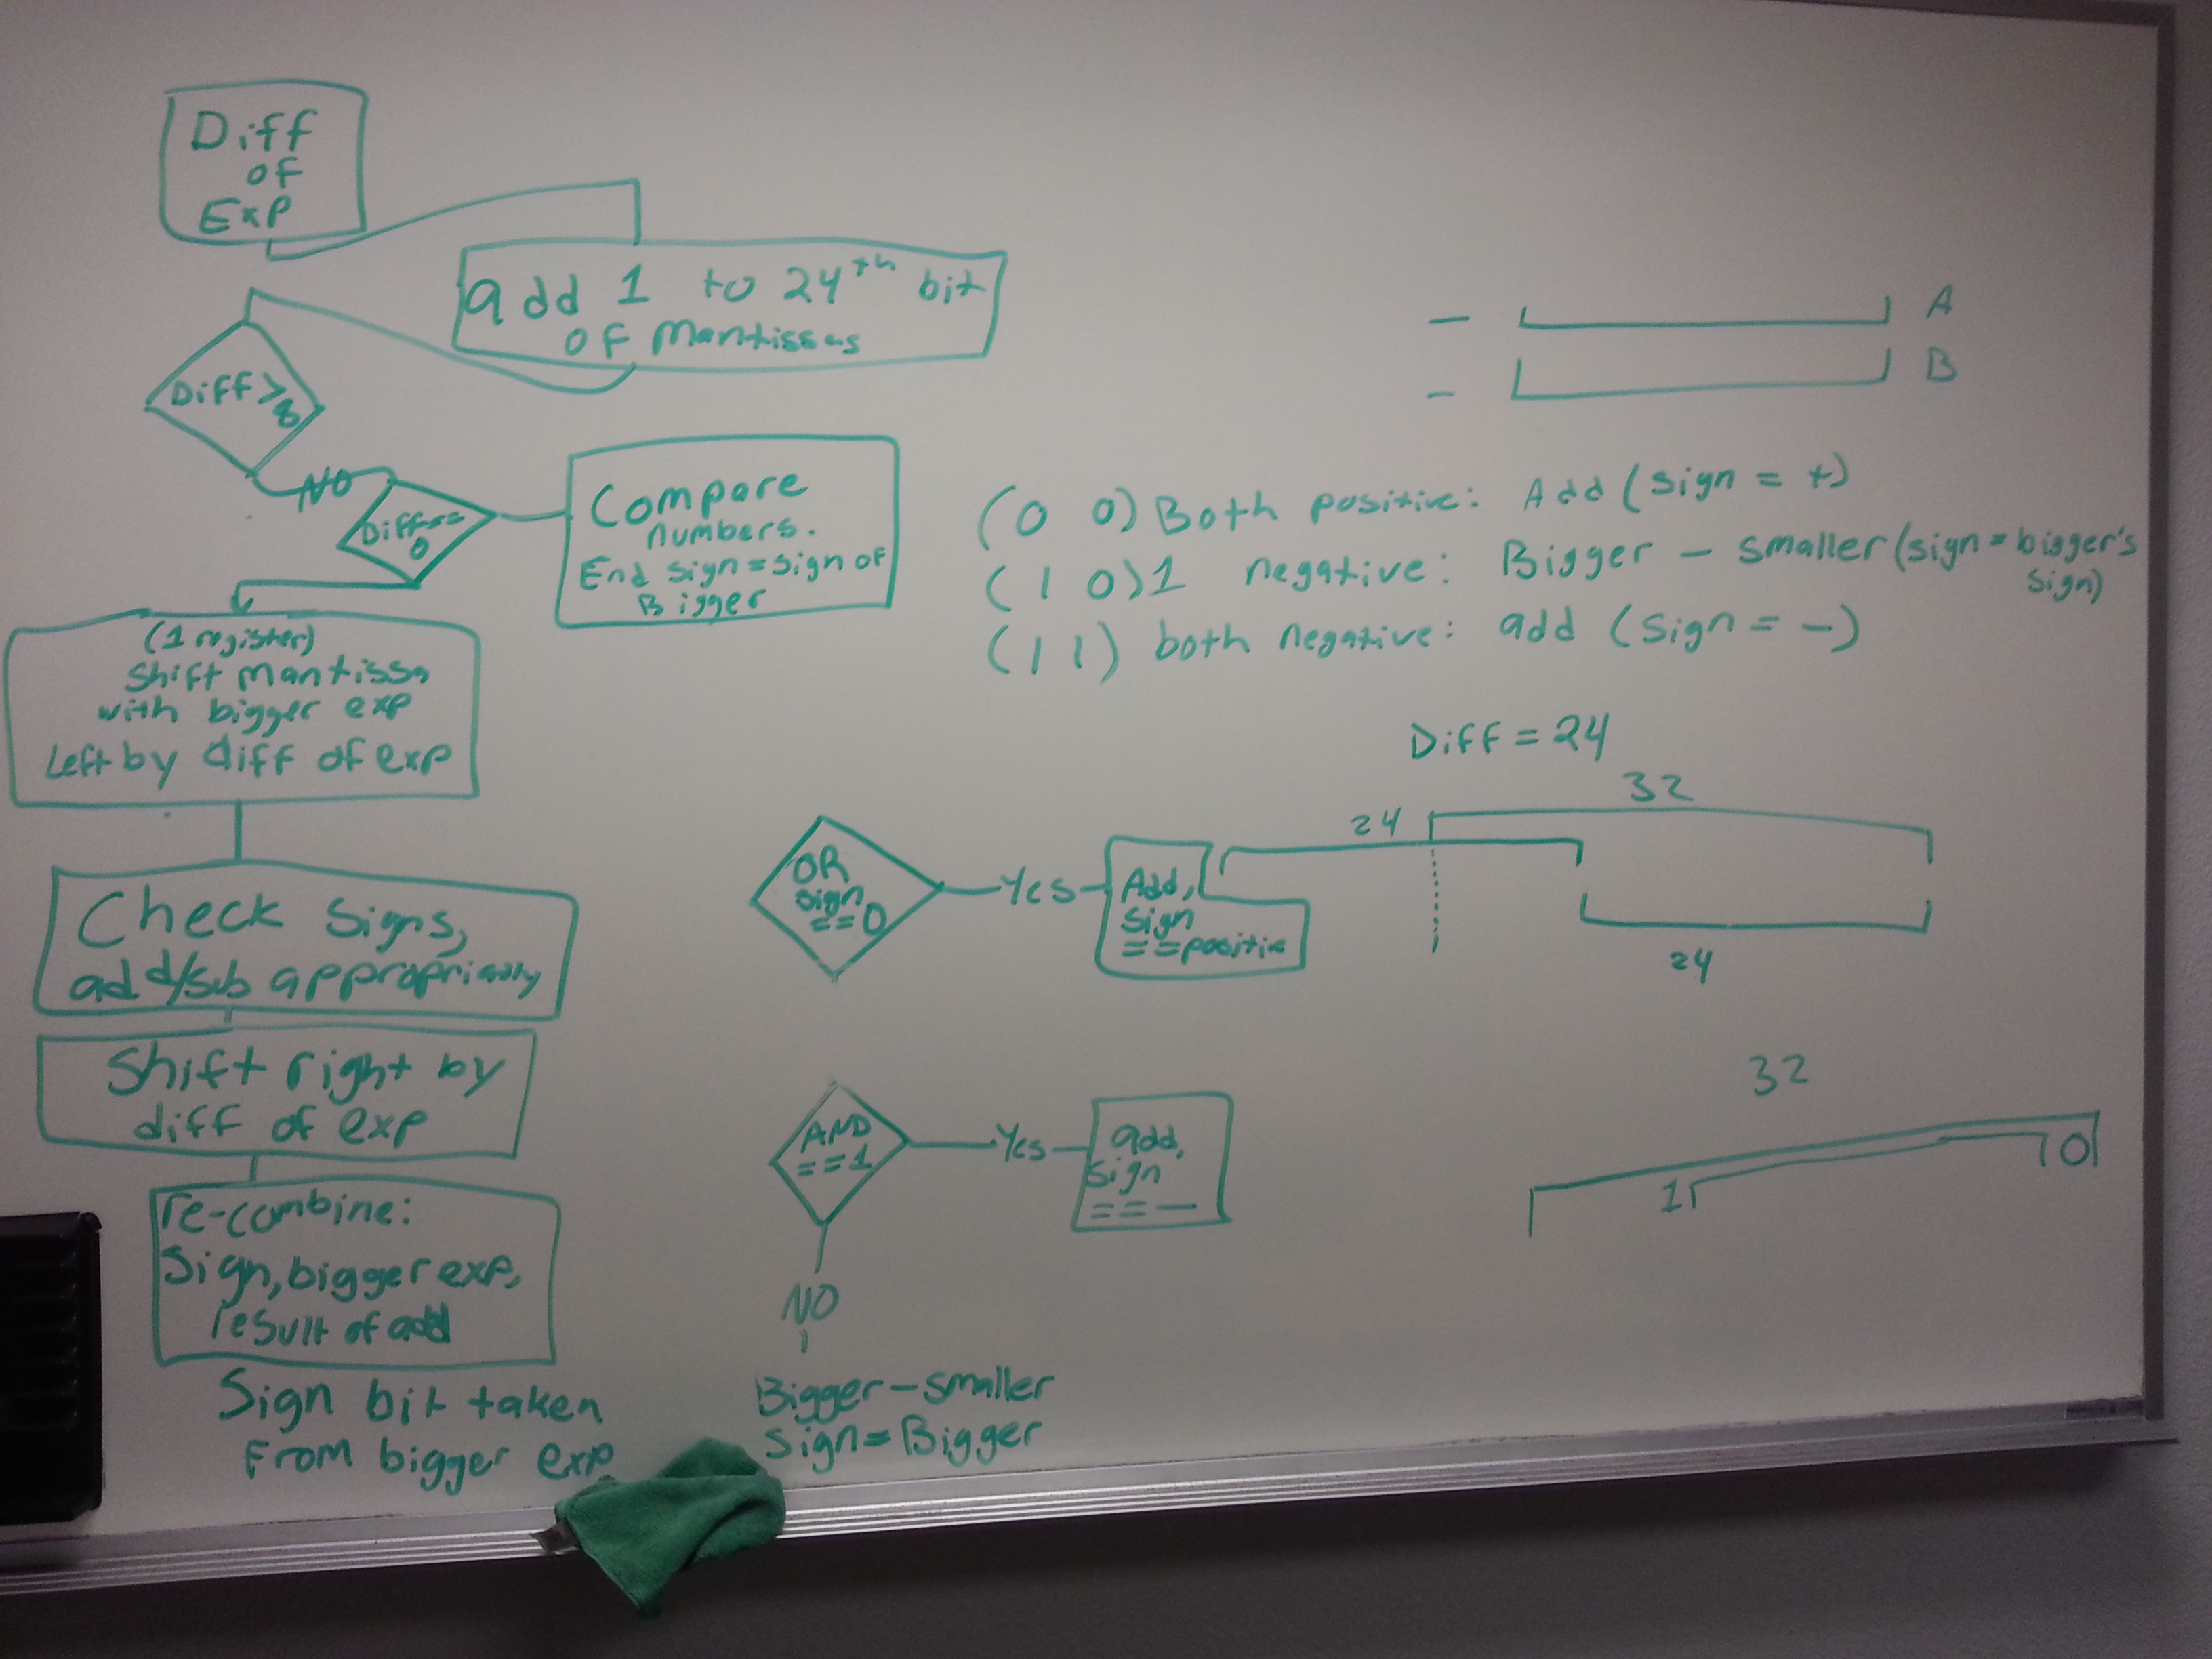 Diff
of
Exp
add 1 to 24th bit
of Mantissas
Diff >
8
NO
Diff ==
0
Compare
numbers.
End sign = sign of
Bigger
(1 register)
Shift Mantissa
with bigger exp
Left by diff of exp
Check signs,
add/sub appropriately
Shift right by
diff of exp
re-combine:
Sign, bigger exp,
result of add
Sign bit taken
From bigger exp
— A
— B
(0 0) Both positive: Add (sign = +)
(1 0) 1 negative: Bigger - smaller (sign = bigger's
sign)
(1 1) both negative: add (sign = -)
OR
sign
==0
Yes
Add,
sign
==positive
AND
==1
Yes
add,
sign
== —
NO
Bigger - smaller
Sign = Bigger
Diff = 24
32
24
24
32
1
0